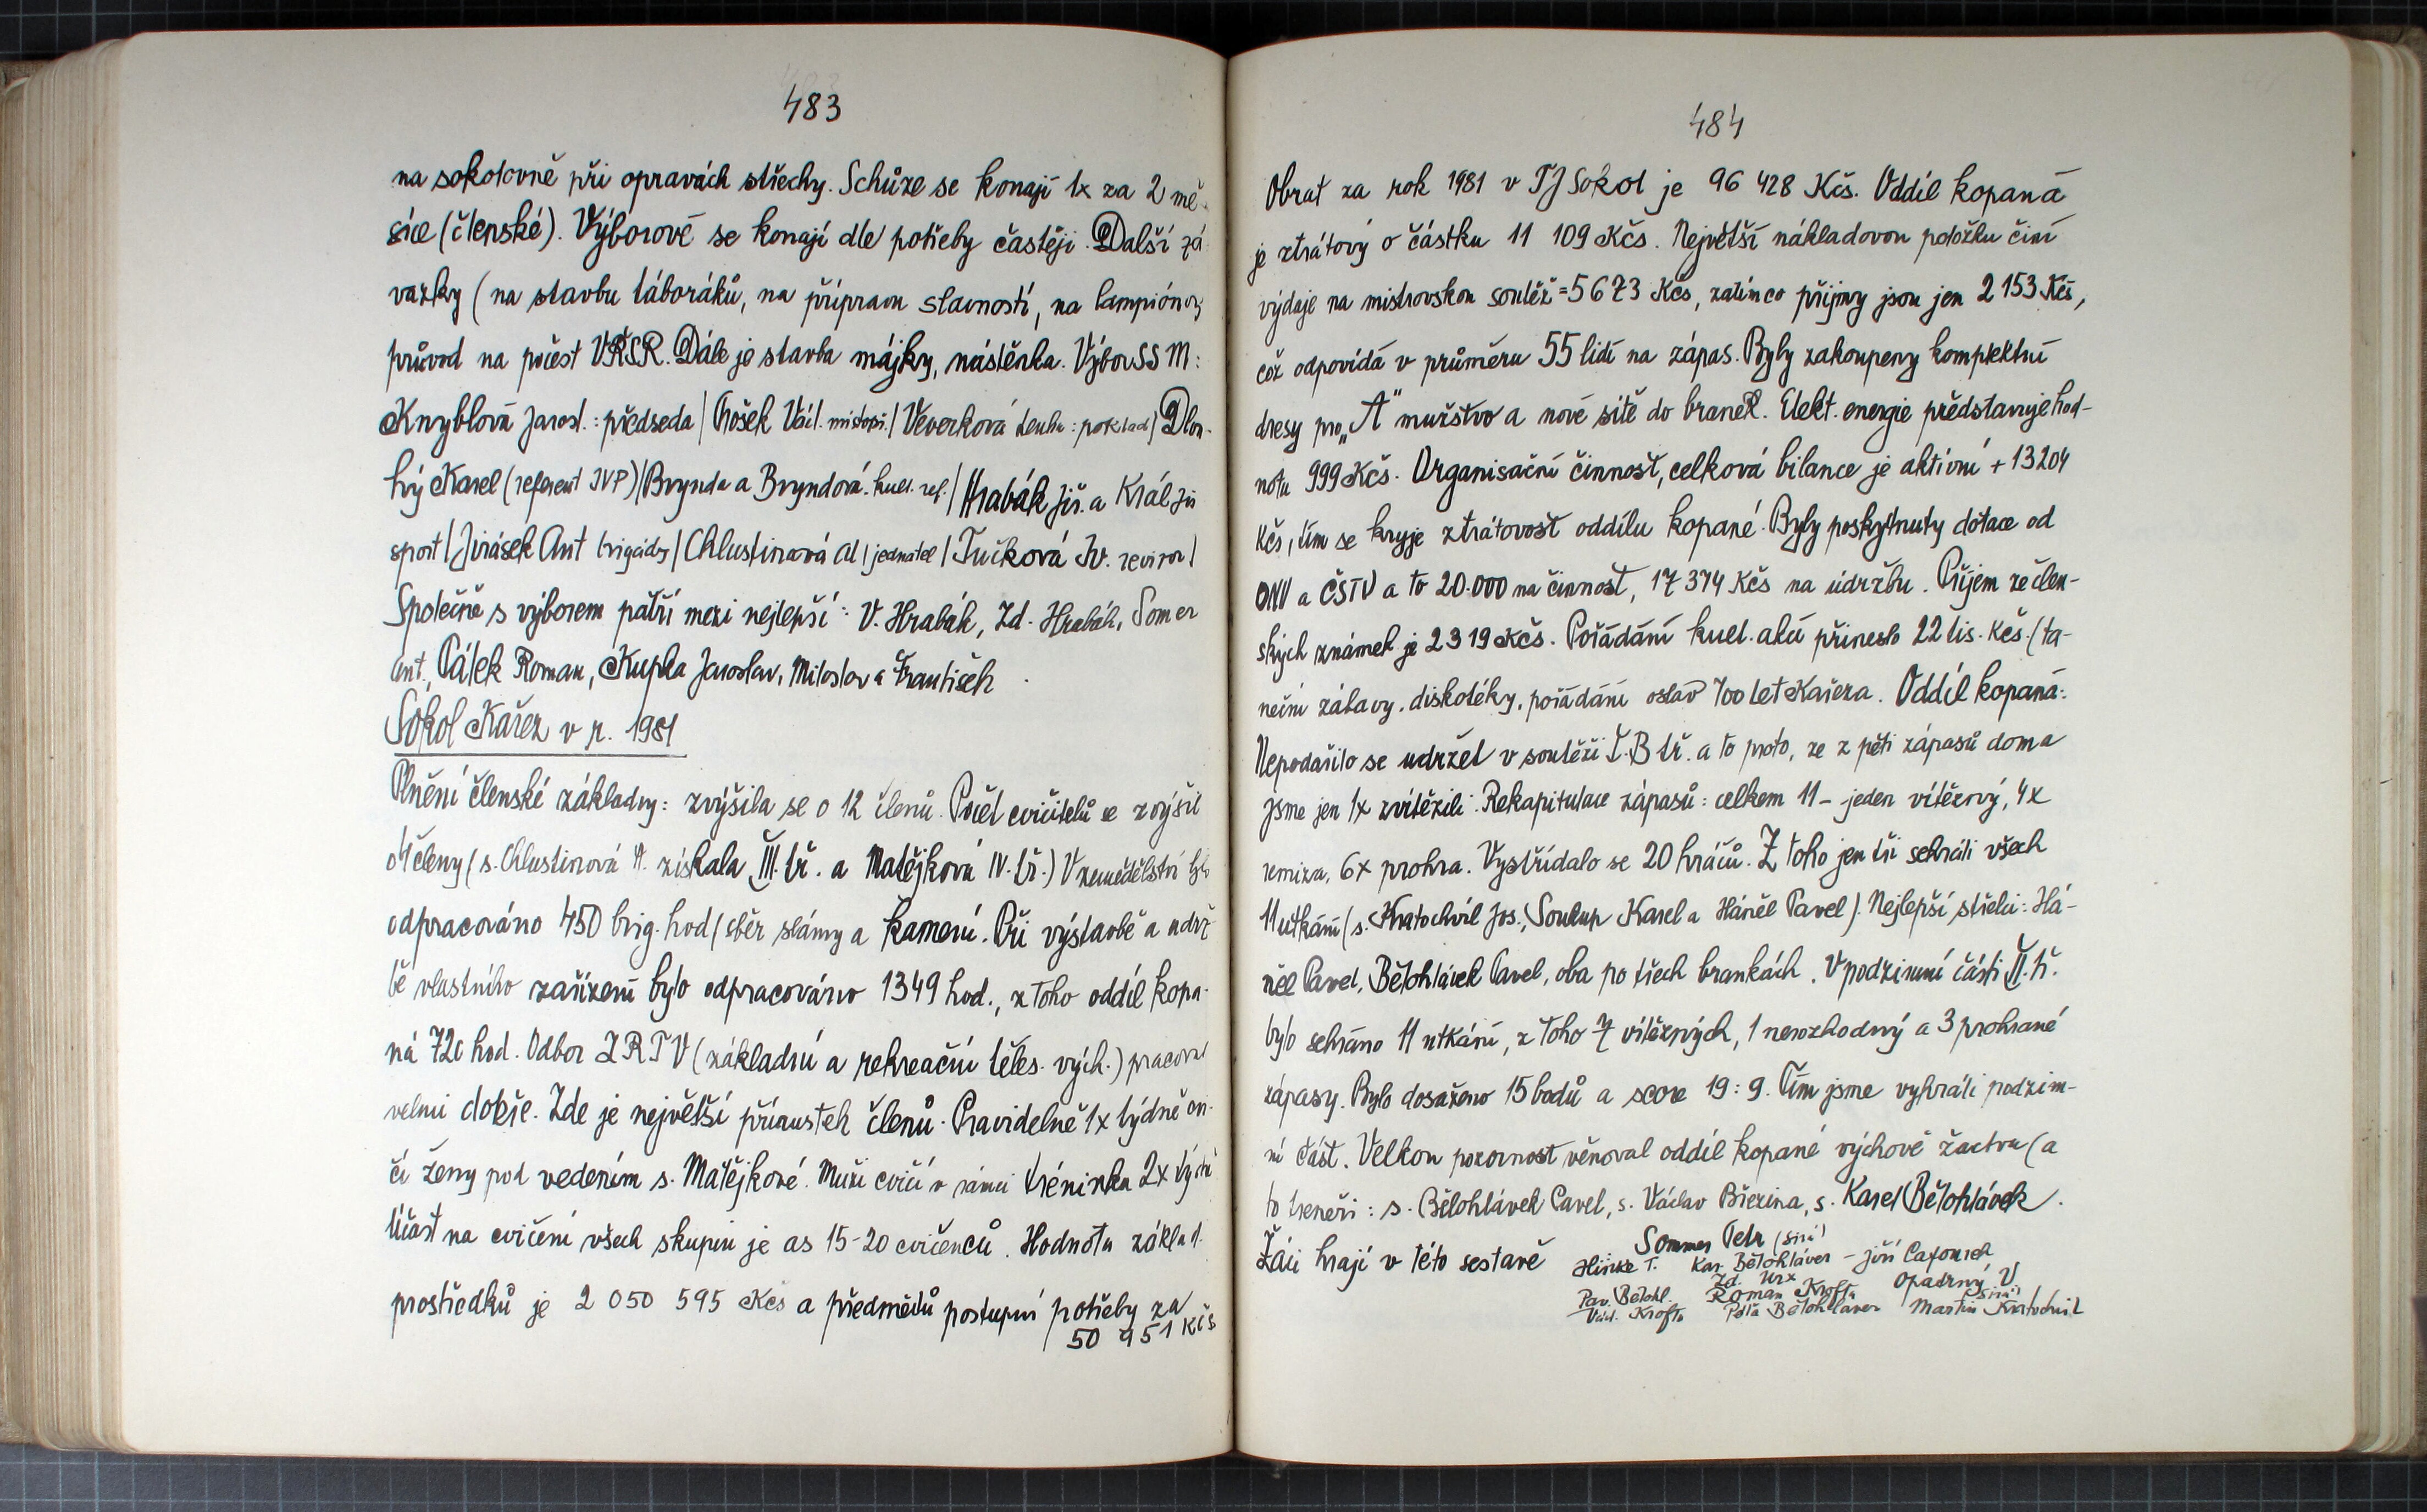 483
na sokolovně při opravách střechy. Schůze se konají 1x za 2 mě-
síce (členské). Výborové se konají dle potřeby častěji. Další zá
vazky (na stavbu táboráků, na přípravu slavností, na lampiónový
průvod na počest VŘSR. Dále je stavba májky, nástěnka. Výbor SSM:
Knyblová Jarosl.: předseda / Hošek Václ. místopř. / Veverková Lenka: poklad / Dlou-
hý Karel (referent JVP) / Brynda a Bryndová. kult. ref. / Hrabák Jiř. a Král Jiř
sport / Jirásek Ant brigády / Chlustinová Al / jednatel / Tučková Iv. revizor /
Společně s výborem patří mezi nejlepší: V. Hrabák, Zd. Hrabák, Somer
Ant., Pátek Roman, Kupka Jaroslav, Miloslav a František
Sokol Kařez v r. 1981
Plnění členské základny: zvýšila se o 12 členů. Počet cvičitelů se zvýšil
o 4 členy (s. Chlustinová A. získala III. tř. a Matějková IV. tř.) V zemědělství bylo
odpracováno 450 brig. hod (sběr slámy a kamení. Při výstavbě a údrž
bě vlastního zařízení bylo odpracováno 1349 hod., z toho oddíl kopa-
ná 720 hod. Odbor ZRTV (základní a rekreační těles. vých.) pracoval
velmi dobře. Zde je největší přírustek členů. Pravidelně 1x týdně cvi-
čí ženy pod vedením s. Matějkové. Muži cvičí v rámci tréninku 2x týdně
Účast na cvičení všech skupin je as 15-20 cvičenců. Hodnota základ.
prostředků je 2 050 595 Kčs a předmětů postupní potřeby za
50 951 Kčs
484
Obrat za rok 1981 v TJ Sokol je 96 428 Kčs. Oddíl kopaná
je ztrátový o částku 11 109 Kčs. Největší nákladovou položku činí
výdaje na mistrovskou soutěž = 5673 Kčs, zatímco příjmy jsou jen 2 153 Kčs,
což odpovídá v průměru 55 lidí na zápas. Byly zakoupeny kompletní
dresy pro „A" mužstvo a nové sítě do branek. Elekt. energie představuje hod-
notu 999 Kčs. Organisační činnost, celková bilance je aktivní + 13204
Kčs, tím se kryje ztrátovost oddílu kopané. Byly poskytnuty dotace od
ONV a ČSTV a to 20.000 na činnost, 17 374 Kčs na údržbu. Příjem ze člen-
ských známek je 2319 Kčs. Pořádání kult. akcí přineslo 22 tis. Kčs. (ta-
neční zábavy, diskotéky, pořádání oslav 700 let Kařeza. Oddíl kopaná:
Nepodařilo se udržet v soutěži I.B tř. a to proto, že z pěti zápasů doma
jsme jen 1x zvítězili. Rekapitulace zápasů: celkem 11 - jeden vítězný, 4x
remiza, 6x prohra. Vystřídalo se 20 hráčů. Z toho jen tři sehráli všech
11 utkání (s. Kratochvíl Jos., Soukup Karel a Háněl Pavel). Nejlepší střelci: Há-
něl Pavel, Bělohlávek Pavel, oba po třech brankách. V podzimní části II. tř.
bylo sehráno 11 utkání, z toho 7 vítězných, 1 nerozhodný a 3 prohrané
zápasy. Bylo dosaženo 15 bodů a score 19:9. Tím jsme vyhráli podzim-
ní část. Velkou pozornost věnoval oddíl kopané výchově žactva (a
to treneři: s. Bělohlávek Pavel, s. Václav Březina, s. Karel Bělohlávek.
Žáci hrají v této sestavě Sommer Petr (Sirá)
Hinke T. Kar. Bělohlávek - Jiří
Zd. Urx Opadrný V
Pav. Bělohl. Roman Krofta Sirá
Václ. Krofta Bělohlávek Martin Kratochvíl